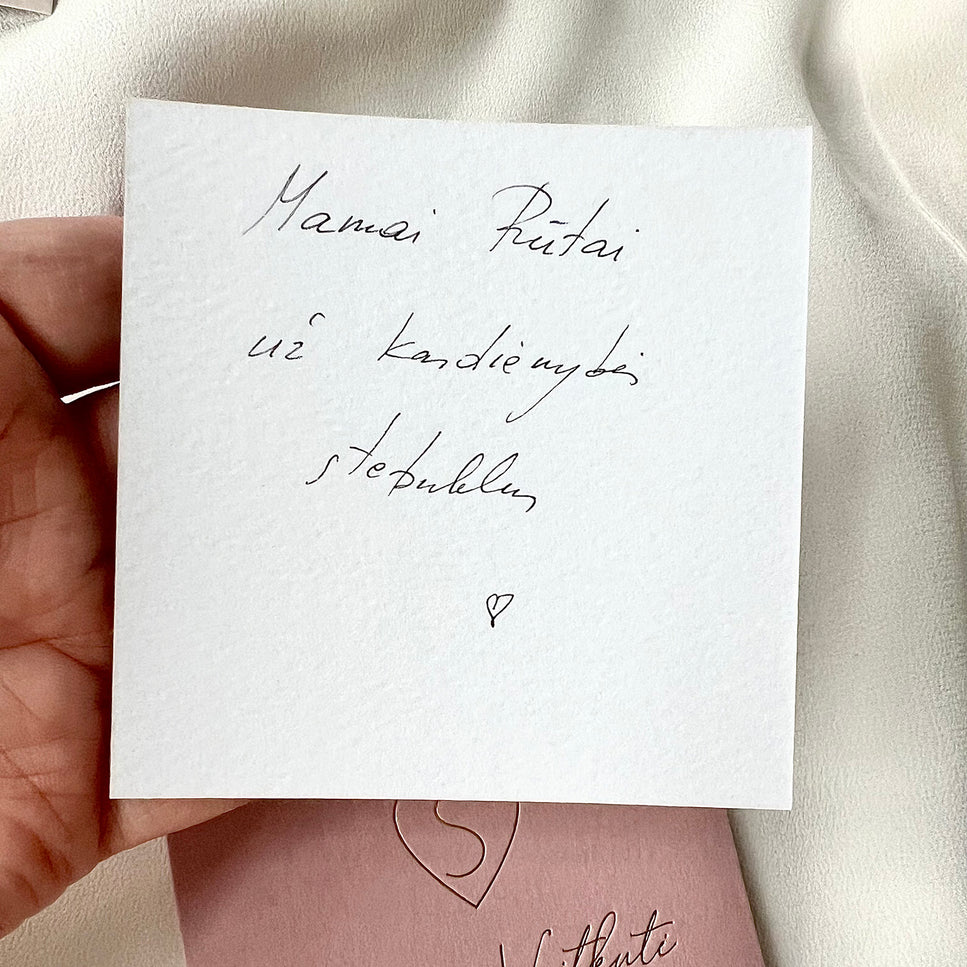 Mamai Rūtai
už kasdienybės
stebuklus
S